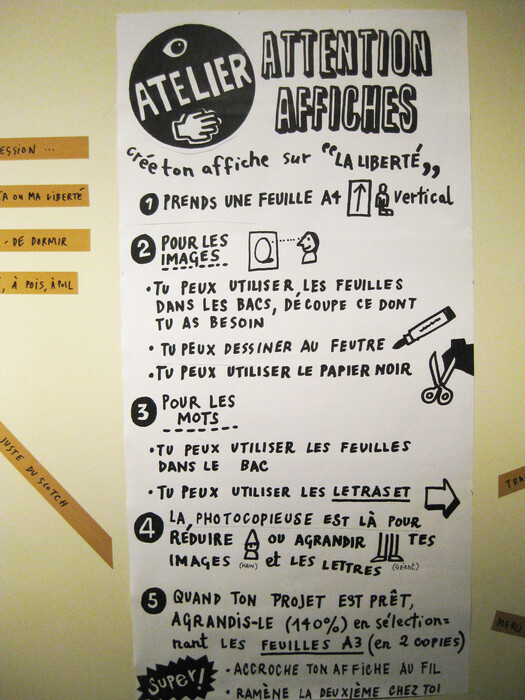 ATELIER
ATTENTION
AFFICHES
crée ton affiche sur "LA LIBERTÉ"
1 PRENDS UNE FEUILLE A4 vertical
2 POUR LES
IMAGES
• TU PEUX UTILISER LES FEUILLES
DANS LES BACS, DÉCOUPE CE DONT
TU AS BESOIN
• TU PEUX DESSINER AU FEUTRE
• TU PEUX UTILISER LE PAPIER NOIR
3 POUR LES
MOTS
• TU PEUX UTILISER LES FEUILLES
DANS LE BAC
• TU PEUX UTILISER LES LETRASET
4 LA PHOTOCOPIEUSE EST LÀ POUR
RÉDUIRE OU AGRANDIR TES
IMAGES (NAIN) et LES LETTRES (Géant)
5 QUAND TON PROJET EST PRÊT,
AGRANDIS-LE (140%) en sélection=
nant LES FEUILLES A3 (en 2 COPIES)
SUPER!
• ACCROCHE TON AFFICHE AU FIL
• RAMÈNE LA DEUXIÈME CHEZ TOI
ESSION ...
TA OU MA LIBERTÉ
. DE DORMIR
, À POIS, À POIL
JUSTE DU SCOTCH
TRA
MERCI